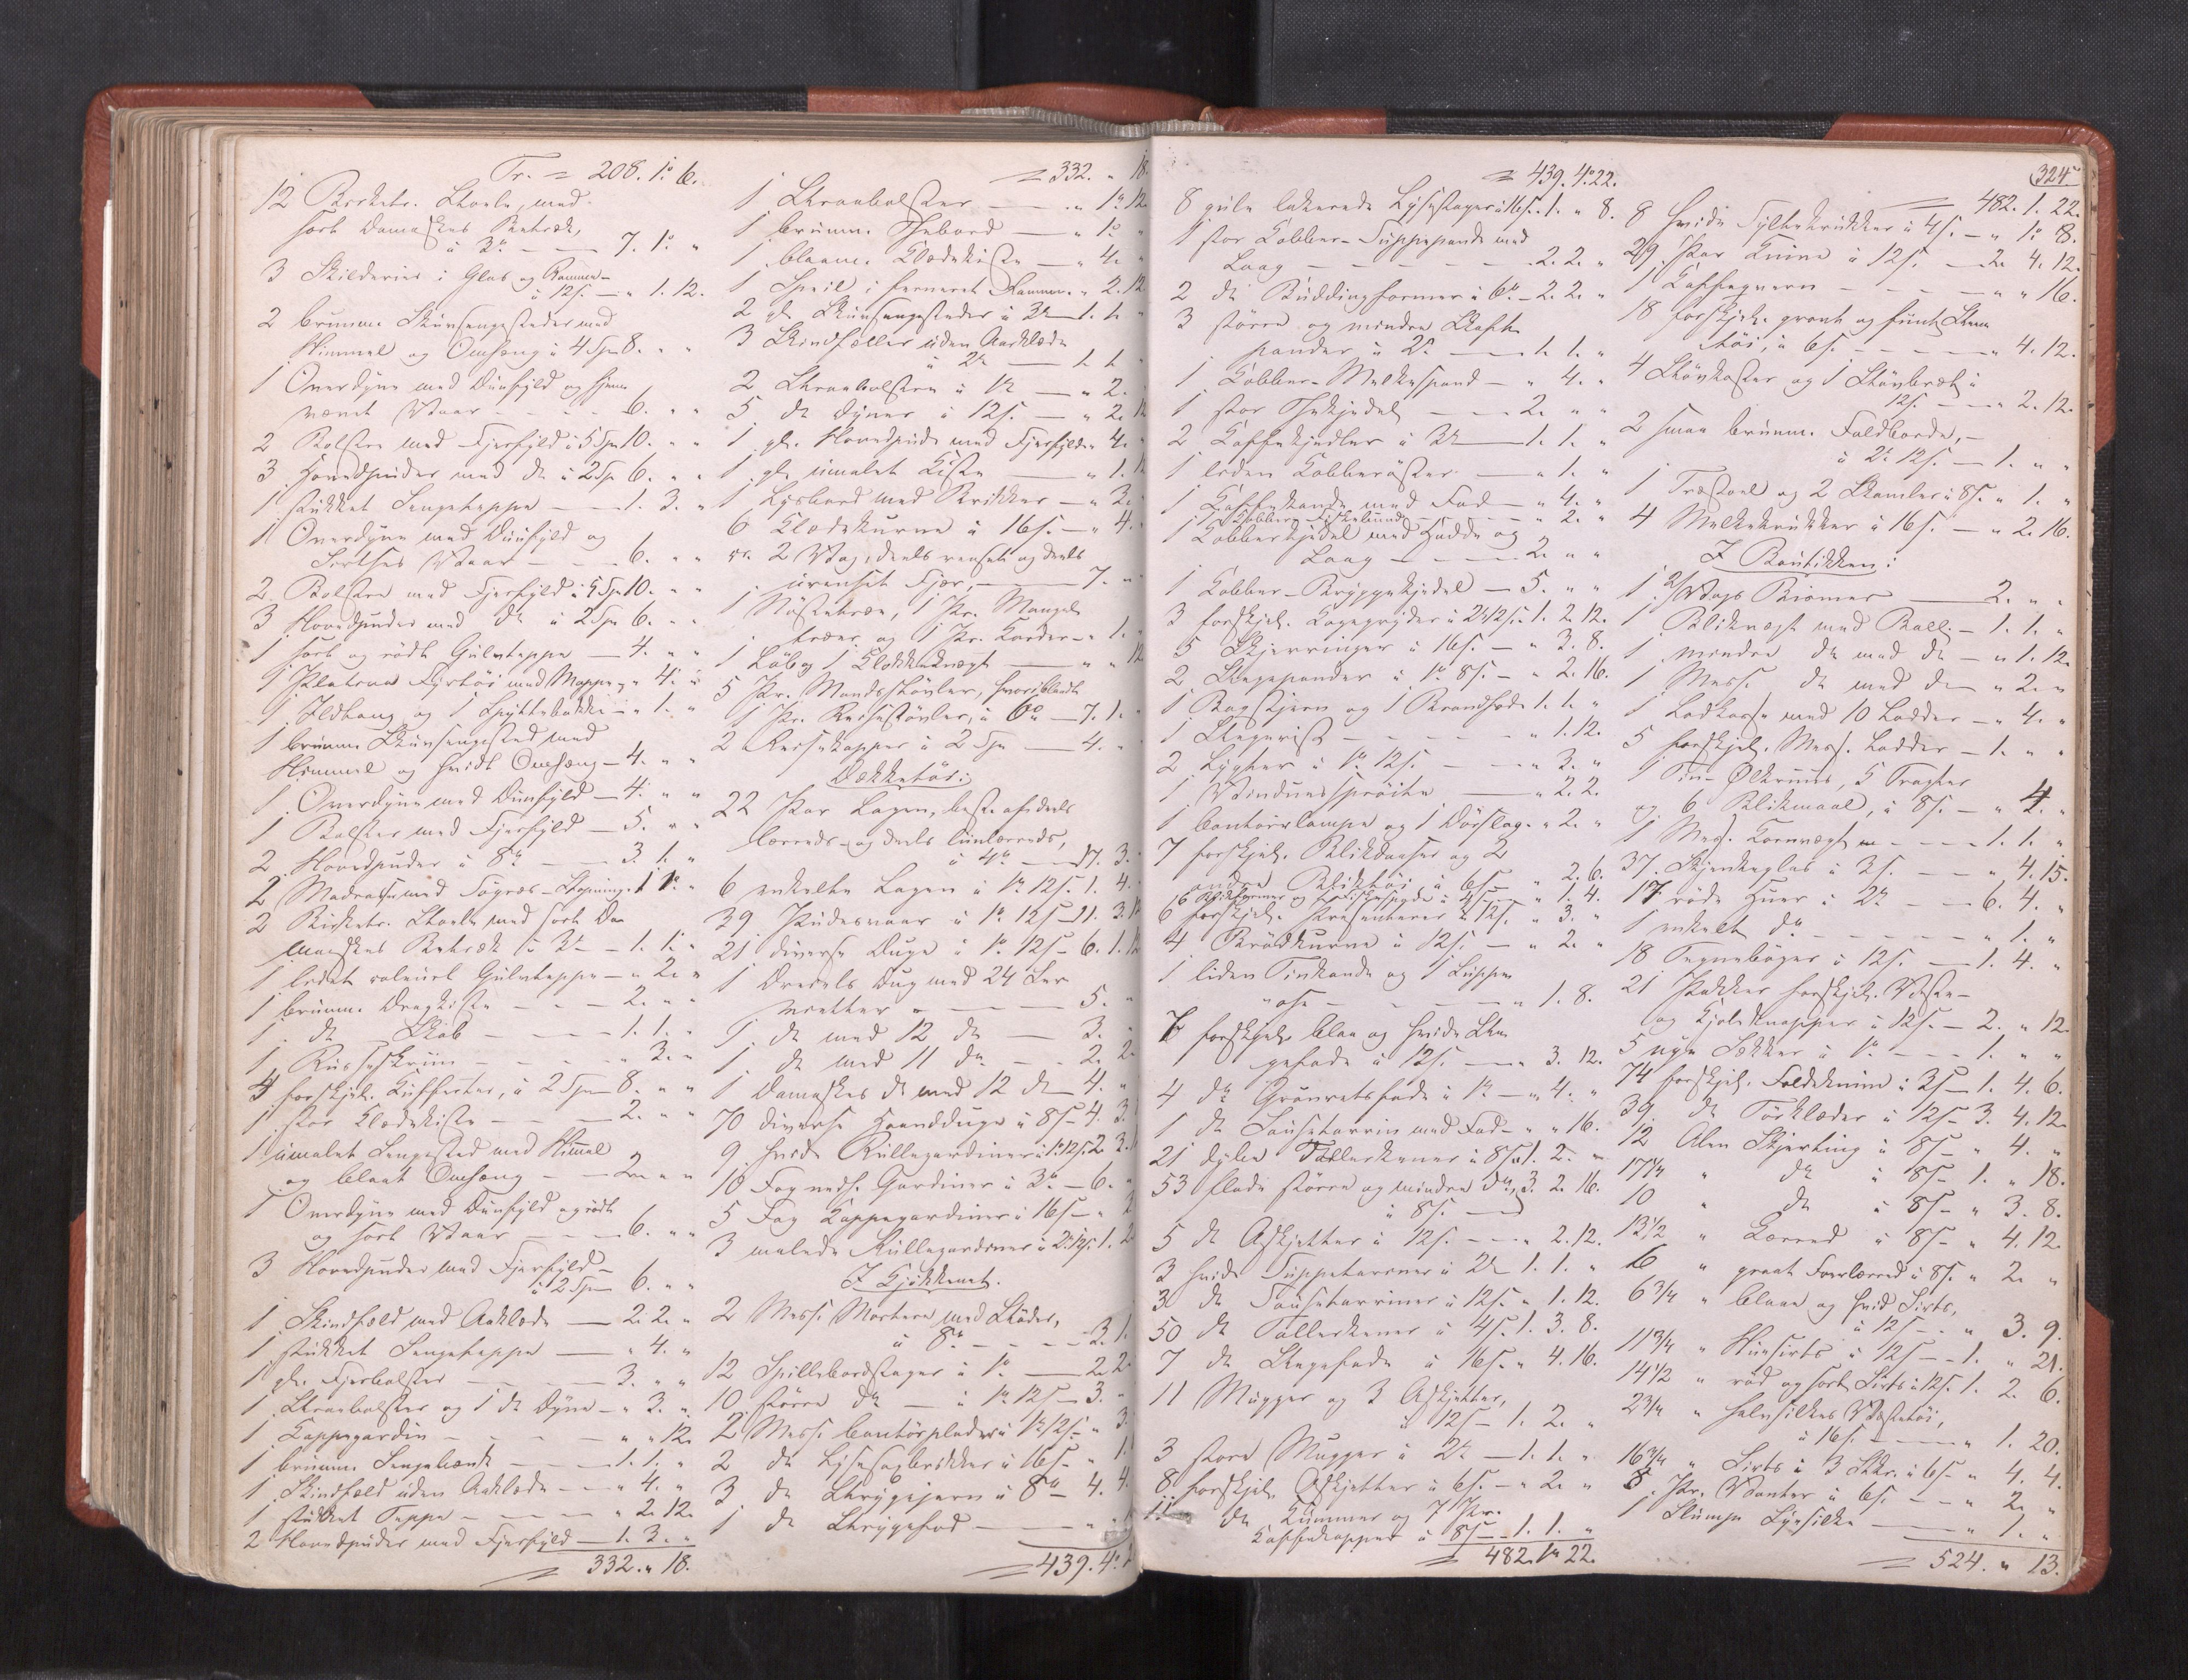 Tr. = 208. 1. 6.
12 Birketr. Stoele, med
sort Damaskes Betræk,
à 3 — 7. 1. "
3 Skilderier i Glas og Ramme
à 12 s. — " 1. 12.
2 brunm. Skuvsengesteder med
Himmel og Omhæng à 4 Spd 8. " "
1 Overdyne med Duunfyld og
Vaar — 6. " "
2 Bolstre med Fjerfyld à 5 Spd 10. " "
3 Hovedpuder med do à 2 Spd 6. " "
1 stukket Sengeteppe — 1. 3. "
1 Overdyne med Duunfyld og
Sirtses Vaar — 6. " "
2 Bolstre med Fjerfyld à 5 Spd 10. " "
3 Hovedpuder med do à 2 Spd 6. " "
1 sort og rødt Gulvteppe — 4. " "
1 Platena Fyrtøi med Mappe — " 4. "
1 Ildtang og 1 Spyttebakke — " 1. "
1 brunm. Skuvsengested med
Himmel og hvidt Omhæng — 4. " "
1 Overdyne med Duunfyld — 4. " "
1 Bolster med Fjerfyld — 5. " "
2 Hovedpuder à 8 — 3. 1. "
2 Madrasse med Søgræs-Stopning à 1.
2 Birketr. Stoele med sort Da-
maskes Betræk à 3 — 1. 1. "
1 lidet couleurt Gulvteppe — " 2. "
1 brunm. Dragkiste — 2. " "
1 do Skab — 1. 1. "
1 Reiseskrin — " 3. "
4 forskjel. Kufferter, à 2 Spd 8. " "
1 stor Klædekiste — 2. " "
1 umalet Sengested med Himmel
og blaat Omhæng — 2. " "
1 Overdyne med Duunfyld og rødt
og sort Vaar — 6. " "
3 Hovedpuder med Fjerfyld
à 2 Spd 6. " "
1 Skindfeld med Aaklæde — 2. 2. "
1 stukket Sengeteppe — " 4. "
1 gl. Fjerbolster — 3. " "
1 Straabolster og 1 do Dyne — " 3. "
1 Kappegardin — " " 12.
1 brunm. Sengebænk — 1. 1. "
1 Skindfeld uden Aaklæde — " 4. "
1 stukket Teppe — " 2. 12.
2 Hovedpuder med Fjerfyld — 1. 3. "
= 332. " 18.
= 332. " 18.
1 Straabolster — " 1. 12.
1 brunm. Thebord — " 1. "
1 blaam. Klædekiste — " 4. "
1 Speil i ferneret Ramme " 2. 12
2 gl. Skuvsengesteder à 3 — 1. 1. "
3 Skindfeller uden Aaklæde
à 2 — 1. 1. "
2 Straabolstre à 1 — " 2. "
5 do Dyner à 12 s. — " 2. 12
1 gl. Hovedpude med Fjerfyld " 4. "
1 gl. umalet Kiste — " 1. 12
1 Lysbord med Brikker — " 3. "
6 Klædekurve à 16 s. — " 4. "
ca. 2 Vog, deels renset og deels
urenset Fjær, — 7. " "
1 Nøstetræ, 1 Pr. Mangle-
træer og 1 Pr. Karder — " 1. "
1 Løb og 1 Klokkevægt — " " 12
5 Pr. Mandsstøvler, hvoriblandt
1 Pr. Reisestøvler, à 6 — 7. 1. "
2 Reisekapper à 2 Spd — 4. " "
Dækketøi:
22 Par Lagen, best. af deels
lærreds- og deels linlærreds,
à 4 — 17. 3. "
6 enkelte Lagen à 1. 12 s. 1. 4. "
39 Pudevaar à 1. 12 s — 11. 3. 12
21 diverse Duge à 1. 12 s — 6. 1. 12
1 Dreiels Dug med 24 Ser-
vietter — 5. " "
1 do med 12 do — 3. " "
1 do med 11 do — 2. 2. "
1 Damaskes do med 12 do 4. " "
70 diverse Haandduge à 8 s — 4. 3.
9 hvide Rullegardiner à 1. 12 s. 2. 3.
10 Fag neds. Gardiner à 3 — 6. "
5 Fag Kappegardiner à 16 s —
3 malede Rullegardiner à 2. 12 s. 1. 2
I Kjøkkenet.
2 Mess. Mortere med Stødere,
à 8 — 3. 1.
12 Spillebordstager à 1. — 2. 2
10 større do — à 1. 12 s — 3. "
2 Mess. Contorplader à 1. 12 s. — " 3.
2 do Lysesaxbrikker à 16 s — " 1.
3 do Strygejern à 8 — 4. 4.
1 do Strygefod —
= 439. 4.
324.
= 439. 4. 22.
8 gule lakerede Lysestager à 16 s. 1. " 8.
1 stor Kobber-Suppepande med
Laag — 2. 2. "
2 do Buddingformer à 6 — 2. 2. "
3 større og mindre Skaft-
pander à 2 — 1. 1. "
1 Kobber-Melkespand — " 4. "
1 stor Thekjedel — 2. " "
2 Kaffekjedler à 3 — 1. 1. "
1 liden Kobberøster — " 1. "
1 Kaffekande med Fad — " 4. "
1 Kobber Fiskespade — " 2. "
1 Kobberkjedel med Hadde og
Laag — 2. " "
1 Kobber-Bryggekjedel — 5. " "
3 forskjel. Kogegryder à 2. 12 s. 1. 2. 12.
5 Skjerringer à 16 s. — " 3. 8.
2 Stegepander à 1. 8 s. — " 2. 16.
1 Bagstjern og 1 Brandfod 1. 1. "
1 Stegerist — " 1. 12.
2 Lygter à 1. 12 s. — " 3. "
1 Vinduessprøite — " 2. 2.
1 Contoirlampe og 1 Dørslag " 2. "
7 forskjel. Blikdaaser og 2
andre Bliktøi à 6 s — " 2. 6.
16 Blikformer og Fiskespade à 4 s — " 1. 4.
6 forskjel. Presenterer à 12 s. " 3. "
4 Brødkurve à 12 s. — " 2. "
1 liden Tinkande og 1 Suppe-
øse — " 1. 8.
7 forskjel. blaa og hvide Ste-
gefade à 12 s. — " 3. 12.
4 do Grønretsfade à 1 — " 4. "
1 do Sauseterrin med Fad — " " 16.
21 dybe Tallerkener à 8 s. 1. 2. "
53 flade større og mindre do, 3. 2. 16.
à 8 s. —
5 do Asjetter à 12 s. — " 2. 12.
3 hvide Suppeterriner à 2 1. 1. "
3 do Sauseterriner à 12 s. " 1. 12.
50 do Tallerkener à 4 s. 1. 3. 8.
7 do Stegefade à 16 s. " 4. 16.
11 Mugger og 3 Asjetter,
à 12 s — 1. 2. "
3 store Mugger à 2 — 1. 1. "
8 forskjel. Asjetter à 6 s. — " 2. "
11 do Kummer og 7 Par
Kaffekopper à 8 s — 1. 1. "
= 482. 1. 22.
= 482. 1. 22.
8 hvide Syltekrukker à 4 s. — " 1. 8.
29 Par Knive à 12 s. — 2. 4. 12.
1 Kaffeqværn — " " 16.
18 forskjel. grovt og fiint Steen-
tøi, à 6 s. — " 4. 12.
4 Støvkoster og 1 Støvbræt à
12 s. — " 2. 12.
2 smaa brunm. Foldborde,
à 2. 12 s. — 1. " "
1 Træstoel og 2 Skamler à 8 s. " 1. "
4 Melkekrukker à 16 s. — " 2. 16.
I Boutikken:
1 2/Vogs Bismer — 2. " "
1 Blikvægt med Ball. — 1. 1. "
1 mindre do med do — " 1. 12.
1 Mess. do med do " 2. "
1 Lodkasse med 10 Lodder — " 4. "
5 forskjel. Mess. Lodder — 1. " "
1 Tin-Ølkruus, 5 Tragter
og 6 Blikmaal, à 8 s. — " 4. "
1 Mess. Kornvægt — 1. 1. "
37 Skjenkeglas à 3 s. — " 4. 15.
17 røde Huer à 2 — 6. 4. "
1 enkelt do — " 1. "
18 Tegnebøger à 12 s. — 1. 4. "
21 Pakker forskjel. Veste-
og Kjoleknapper à 12 s. — 2. " 12.
5 nye Sækker à 1 — 1. " "
74 forskjel. Foldeknive à 3 s — 1. 4. 6.
39 do Tørklæder à 12 s — 3. 4. 12.
12 Alen Skjerting à 8 s — " 4. "
17 1/4 " do à 8 s — 1. " 18.
10 " do à 8 s — " 3. 8.
13 1/2 " Lærred à 8 s — " 4. 12.
6 " graat Foerlærred à 8 s. " 2. "
6 3/4 " blaae og hvid Sirts,
à 12 s — " 3. 9.
11 3/4 " Huusirts à 12 s — 1. " 21.
14 1/2 " rød og sort Sirts à 12 s. 1. 2. 6.
2 3/4 " halvsilkes Vestetøi,
à 16 s. — " 1. 20.
16 3/4 " Sirts i 3 Stkr. à 6 s — " 4. 4.
8 Pr. Vanter à 6 s. — " 2. "
1 Slump Sysilke — " 1. "
= 524. " 13.